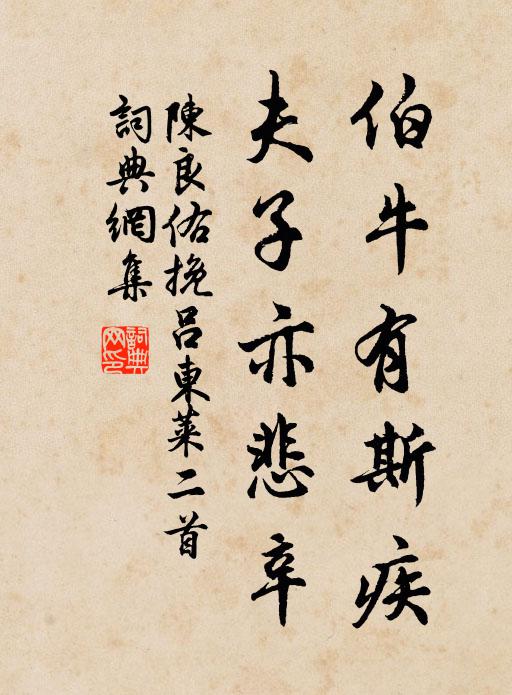 伯牛有斯疾
夫子亦悲辛
陳良佑挽呂東萊二首
詞典網集
詞典網印